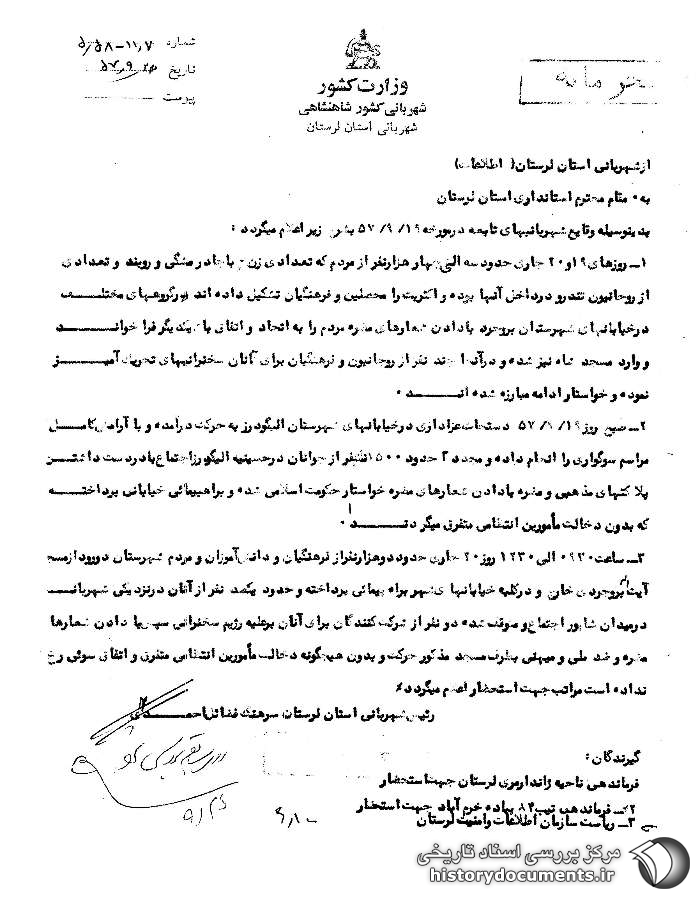 شماره ۵٫۵۸-۱۱٫۷
تاریخ
پیوست
محرمانه
وزارت کشور
شهربانی کشور شاهنشاهی
شهربانی استان لرستان
از شهربانی استان لرستان ( اطلاعات)
به ۰ مقام محترم استانداری استان لرستان
بدینوسیله وقایع شهربانیهای تابعه در مورخه ۱۹/ ۹/ ۵۷ بشرح زیر اعلام میگردد :
۱ــ روزهای ۱۹و ۲۰ جاری حدود سه الی چهار هزار نفر از مردم که تعدادی زن با چادر مشگی و روبند و تعدادی
از روحانیون تندرو در داخل آنها بوده و اکثریت را محصلین و فرهنگیان تشکیل داده اند بگروههای مختلــف
در خیابانهای شهرستان بروجرد با دادن شعارهای مضره مردم را به اتحاد و اتفاق با یکدیگر فرا خوانــد
و وارد مسجد شاه نیز شده و در آنجا چند نفر از روحانیون و فرهنگیان برای آنان سخنرانیهای تحریک آمیــز
نموده و خواستار ادامه مبارزه شده انــد ۰
۲ــ صبح روز ۱۹/ ۹/ ۵۷ دستجات عزاداری در خیابانهای شهرستان الیگودرز به حرکت درآمده و با آرامش کامــل
مراسم سوگواری را انجام داده و مجدد آ حدود ۱۵۰۰ نفر از جوانان در حسینیه الیگودرز اجتماع با در دست داشتــن
پلاکتهای مذهبی و مضره با دادن شعارهای مضره خواستار حکومت اسلامی شده و براهپیمائی خیابانی پرداختــه
که بدون دخالت مأمورین انتظامی متفرق میگردنــد ۰
۳ــ ساعت ۰۹۳۰ الی ۱۲۳۰ روز ۲۰ جاری حدود دو هزار نفر از فرهنگیان و دانش آموزان و مردم شهرستان دورود از مسجد
آیت اله بروجردی خارج و در کلیه خیابانهای شهر براه پیمائی پرداخته و حدود یکصد نفر از آنان در نزدیکی شهربانــی
در میدان شاپور اجتماع و متوقف شده دو نفر از شرکت کنندگان برای آنان برعلیه رژیم سخنرانی سپس با دادن شعارها
مضره و ضد ملی و میهنی بطرف مسجد مذکور حرکت و بدون هیچگونه دخالت مأمورین انتظامی متفرق و اتفاق سوئی رخ
نداده است مراتب جهت استحضار اعلام میگردد٪
رئیس شهربانی استان لرستان سرهنگ فضائل احمــدی
گیرندگان :
فرماندهی ناحیه ژاندارمری لرستان جهت استحضار
۲ــ فرماندهی تیپ ۸۴ پیاده خرم آباد جهت استحضار
۳ــ ریاست سازمان اطلاعات و امنیت لرستان
مرکز بررسی اسناد تاریخی
historydocuments.ir